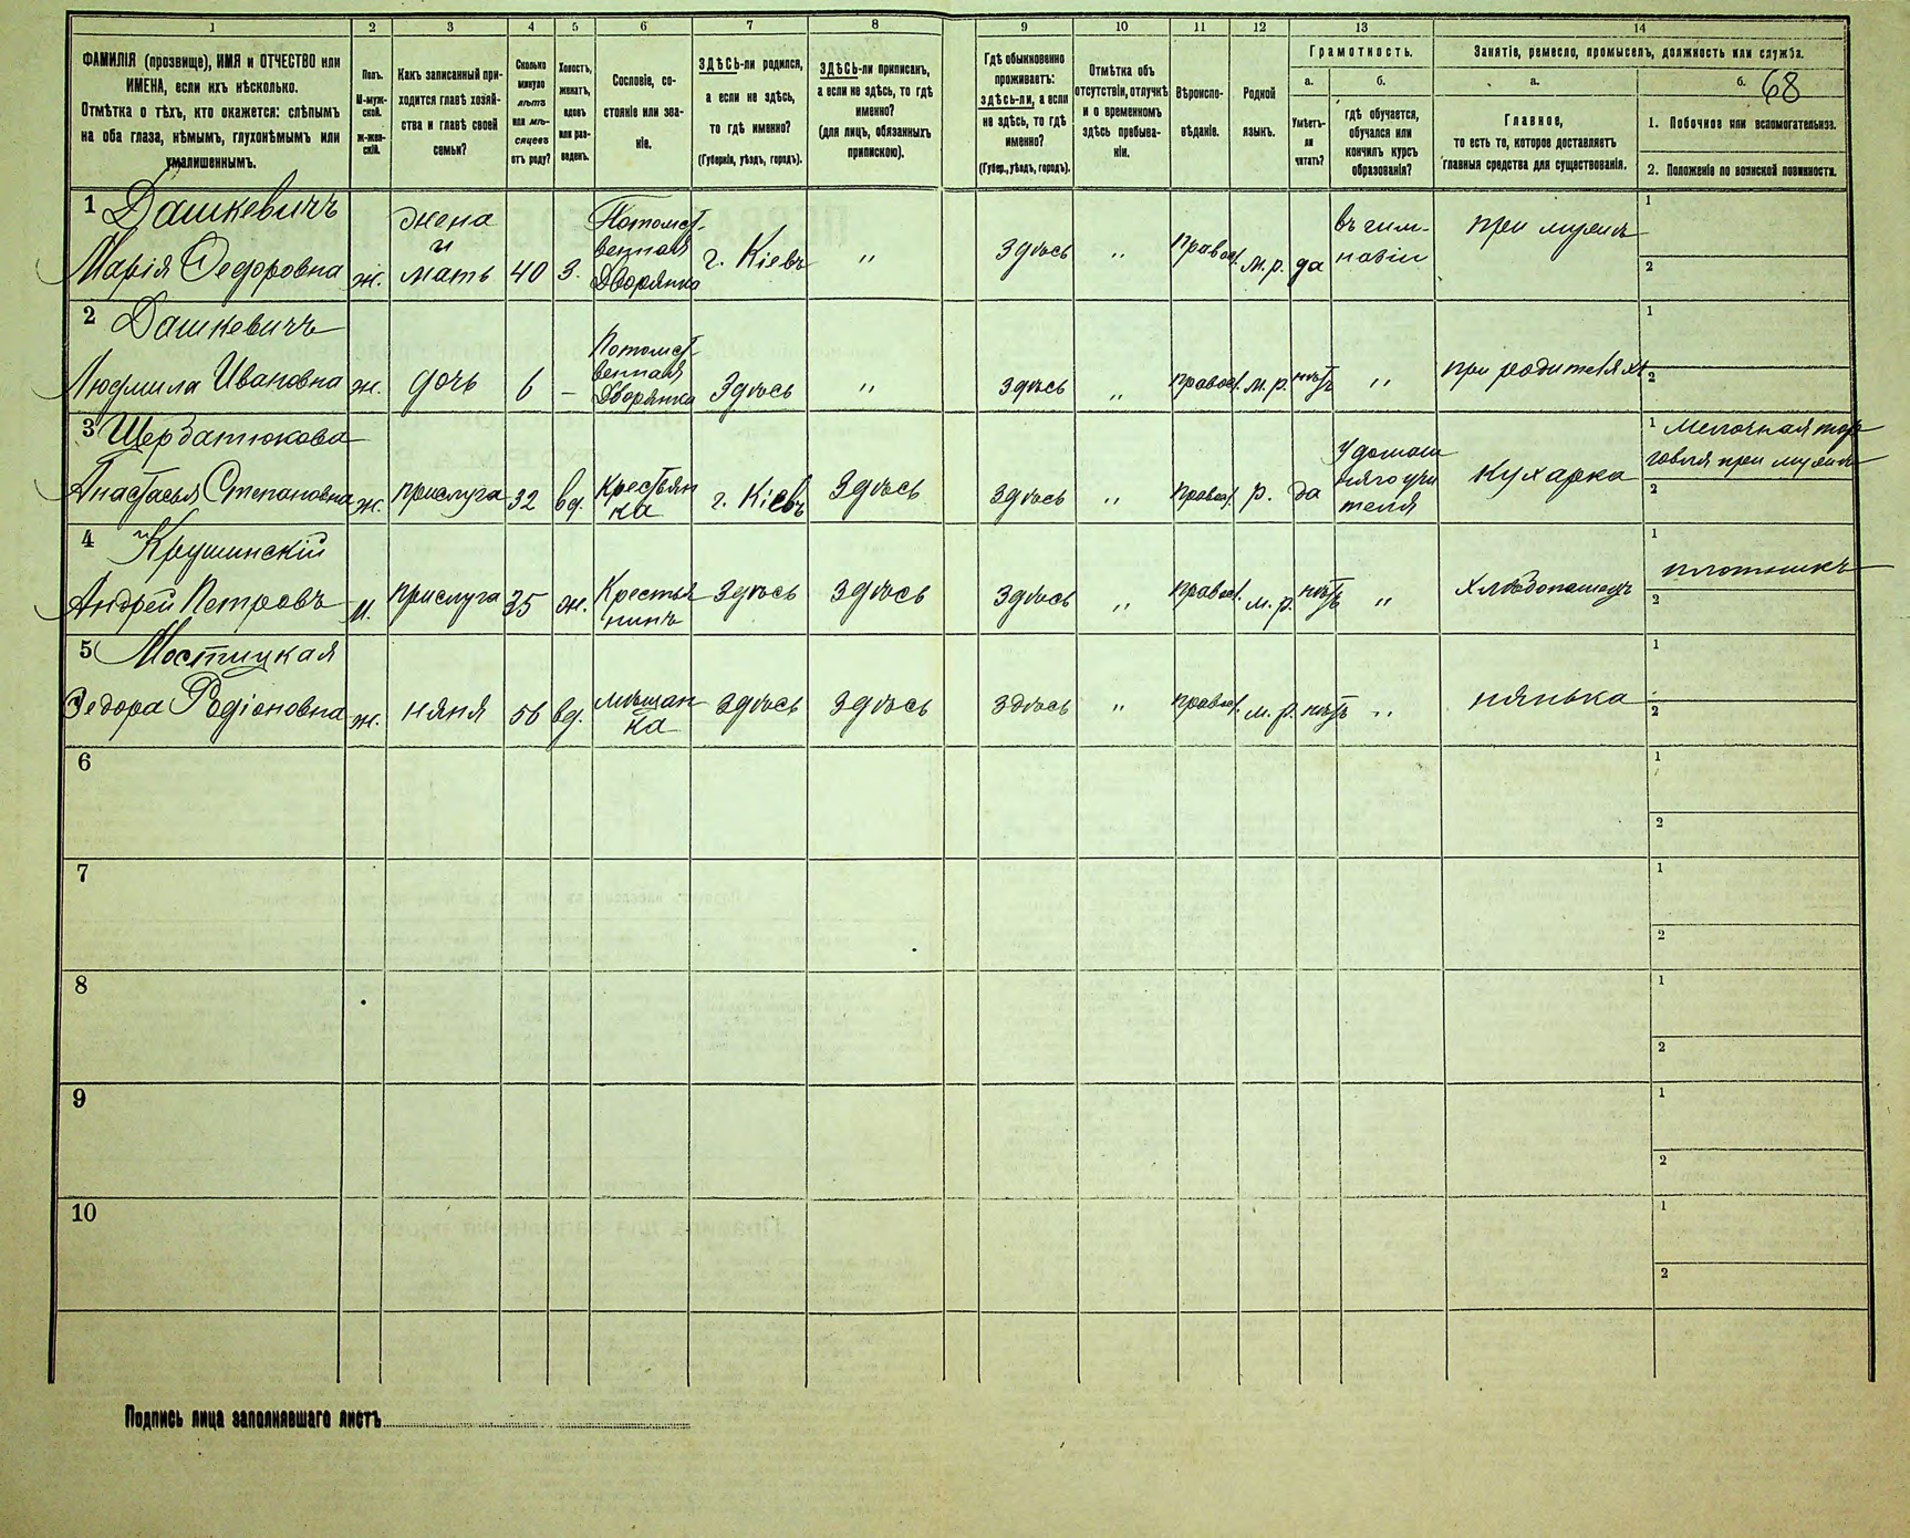 1 2 3 4 5 6 7 8 9 10 11 12 13 14
ФАМИЛІЯ (прозвище), ИМЯ и ОТЧЕСТВО или
ИМЕНА, если ихъ нѣсколько.
Отмѣтка о тѣхъ, кто окажется: слѣпымъ
на оба глаза, нѣмымъ, глухонѣмымъ или
умалишеннымъ.
Полъ.
М-муж-
ской.
ж-жен-
скій.
Какъ записанный при-
ходится главѣ хозяй-
ства и главѣ своей
семьи?
Сколько
минуло
лѣтъ
или мѣ-
сяцевъ
отъ роду?
Холостъ,
женатъ,
вдовъ
или раз-
веденъ.
Сословіе, со-
стояніе или зва-
ніе.
ЗДѢСЬ-ли родился,
а если не здѣсь,
то гдѣ именно?
(Губернія, уѣздъ, городъ).
ЗДѢСЬ-ли приписанъ,
а если не здѣсь, то гдѣ
именно?
(для лицъ, обязанныхъ
припискою).
Гдѣ обыкновенно
проживаетъ:
здѣсь-ли, а если
не здѣсь, то гдѣ
именно?
(Губер., уѣздъ, городъ).
Отмѣтка объ
отсутствіи, отлучкѣ
и о временномъ
здѣсь пребыва-
ніи.
Вѣроиспо-
вѣданіе.
Родной
языкъ.
Грамотность.
а.
Умѣетъ-
ли
читать?
б.
гдѣ обучается,
обучался или
кончилъ курсъ
образованія?
Занятіе, ремесло, промыселъ, должность или служба.
а.
Главное,
то есть то, которое доставляетъ
главныя средства для существованія.
б. 68
1. Побочное или вспомогательное.
2. Положеніе по воинской повинности.
1 Дашкевичъ
Марія Федоровна ж. жена и мать 40 З. Потомст-
венная
Дворянка г. Кіевъ „ здѣсь „ правосл. м.р. да въ гим-
назіи при мужѣ 1
2
2 Дашкевичъ
Людмила Ивановна ж. дочь 6 — Потомст-
венная
Дворянка Здѣсь „ здѣсь „ правосл. м.р. нѣтъ „ при родителяхъ 1
2
3 Щербатюкова
Анастасья Степановна ж. прислуга 32 вд. Крестьян
ка г. Кіевъ Здѣсь здѣсь „ правосл. р. да У домаш
няго учи
теля Кухарка 1 Мелочная тор
говля при мужѣ
2
4 Крушинскій
Андрей Петровъ м. прислуга 35 ж. Крестья
нинъ Здѣсь Здѣсь Здѣсь „ правосл. м.р. нѣтъ „ Хлѣбопашецъ 1
плотникъ
2
5 Мостицкая
Федора Родіоновна ж. няня 56 вд. мѣщан
ка здѣсь здѣсь здѣсь „ правосл. м.р. нѣтъ „ нянька 1
2
6 1
2
7 1
2
8 1
2
9 1
2
10 1
2
Подпись лица заполнявшаго листъ